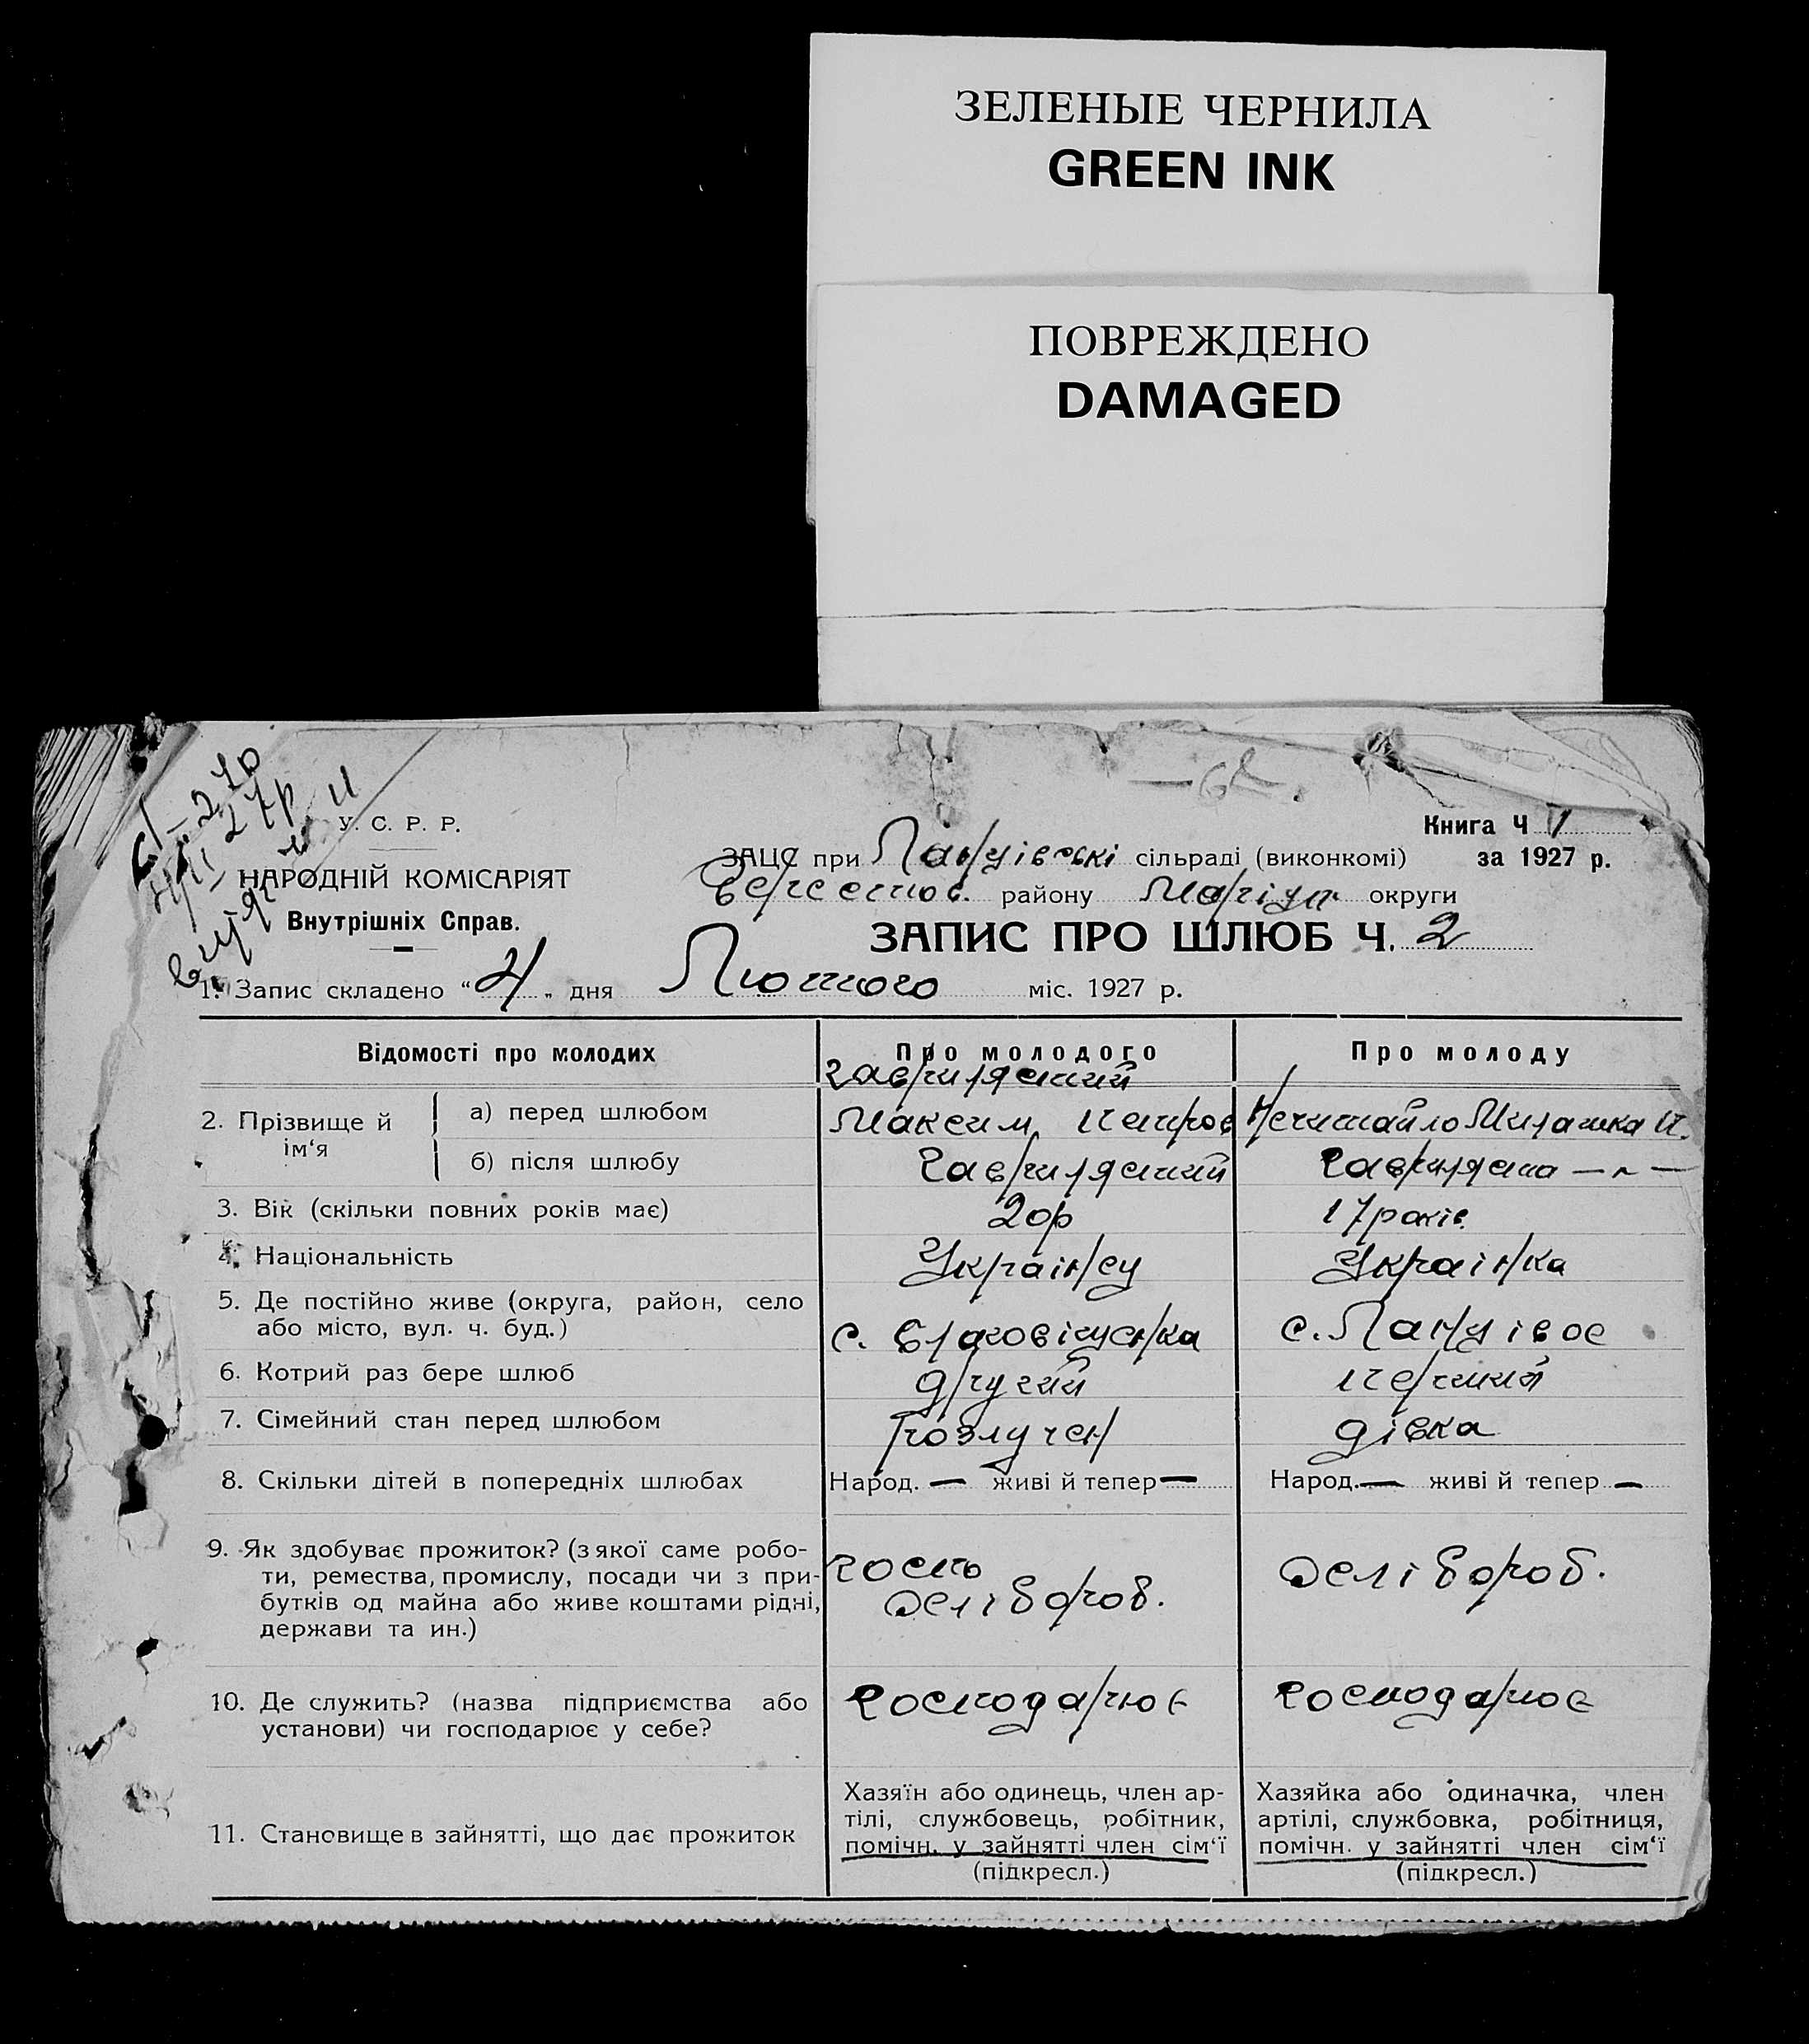 ЗЕЛЕНЫЕ ЧЕРНИЛА
GREEN INK
ПОВРЕЖДЕНО
DAMAGED
У. С. Р. Р.
НАРОДНІЙ КОМІСАРІЯТ
Внутрішніх Справ.
Книга Ч 1
за 1927 р.
ЗАЦС при сільраді (виконкомі)
району Маріуп округи
ЗАПИС ПРО ШЛЮБ Ч. 2
1. Запис складено “4„ дня Лютого міс. 1927 р.
Відомості про молодих
Про молодого
Про молоду
2. Прізвище й ім‘я
а) перед шлюбом
Максим Петров
Нечитайло И.
б) після шлюбу
3. Вік (скільки повних років має)
20р
17 років
4. Національність
Українец
Українка
5. Де постійно живе (округа, район, село
або місто, вул. ч. буд.)
с.
с.
6. Котрий раз бере шлюб
другий
перший
7. Сімейний стан перед шлюбом
розлучен
дівка
8. Скільки дітей в попередніх шлюбах
Народ. — живі й тепер —
Народ. — живі й тепер —
9. Як здобуває прожиток? (з якої саме робо-
ти, ремества, промислу, посади чи з при-
бутків од майна або живе коштами рідні,
держави та ин.)
хлібороб.
хлібороб.
10. Де служить? (назва підприємства або
установи) чи господарює у себе?
господарює
господарює
11. Становище в зайнятті, що дає прожиток
Хазяїн або одинець, член ар-
тілі, службовець, робітник,
помічн. у зайнятті член сім‘ї
(підкресл.)
Хазяйка або одиначка, член
артілі, службовка, робітниця,
помічн. у зайнятті член сім‘ї
(підкресл.)